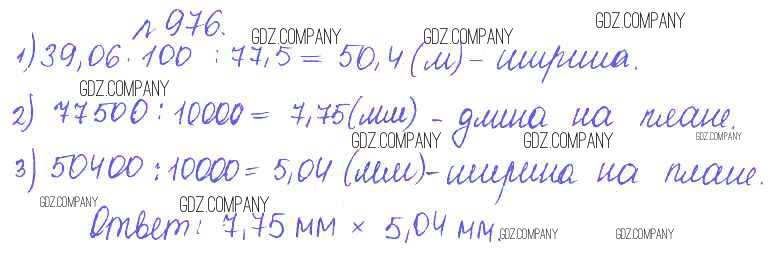 №976. GDZ.COMPANY
GDZ.COMPANY GDZ.COMPANY
1) 39,06 · 100 : 77,5 = 50,4 (м) - ширина.
GDZ.COMPANY
2) 77500 : 10000 = 7,75 (мм) - длина на плане.
GDZ.COMPANY GDZ.COMPANY GDZ.COMPANY
3) 50400 : 10000 = 5,04 (мм) - ширина на плане.
GDZ.COMPANY GDZ.COMPANY
Ответ: 7,75 мм × 5,04 мм.
GDZ.COMPANY GDZ.COMPANY